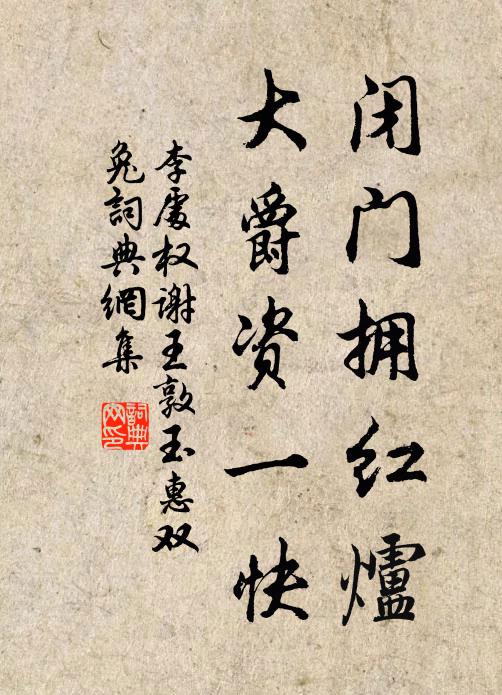 闭门拥红爐
大爵资一快
李處权谢王敦玉惠双
兔詞典網集
詞典网印